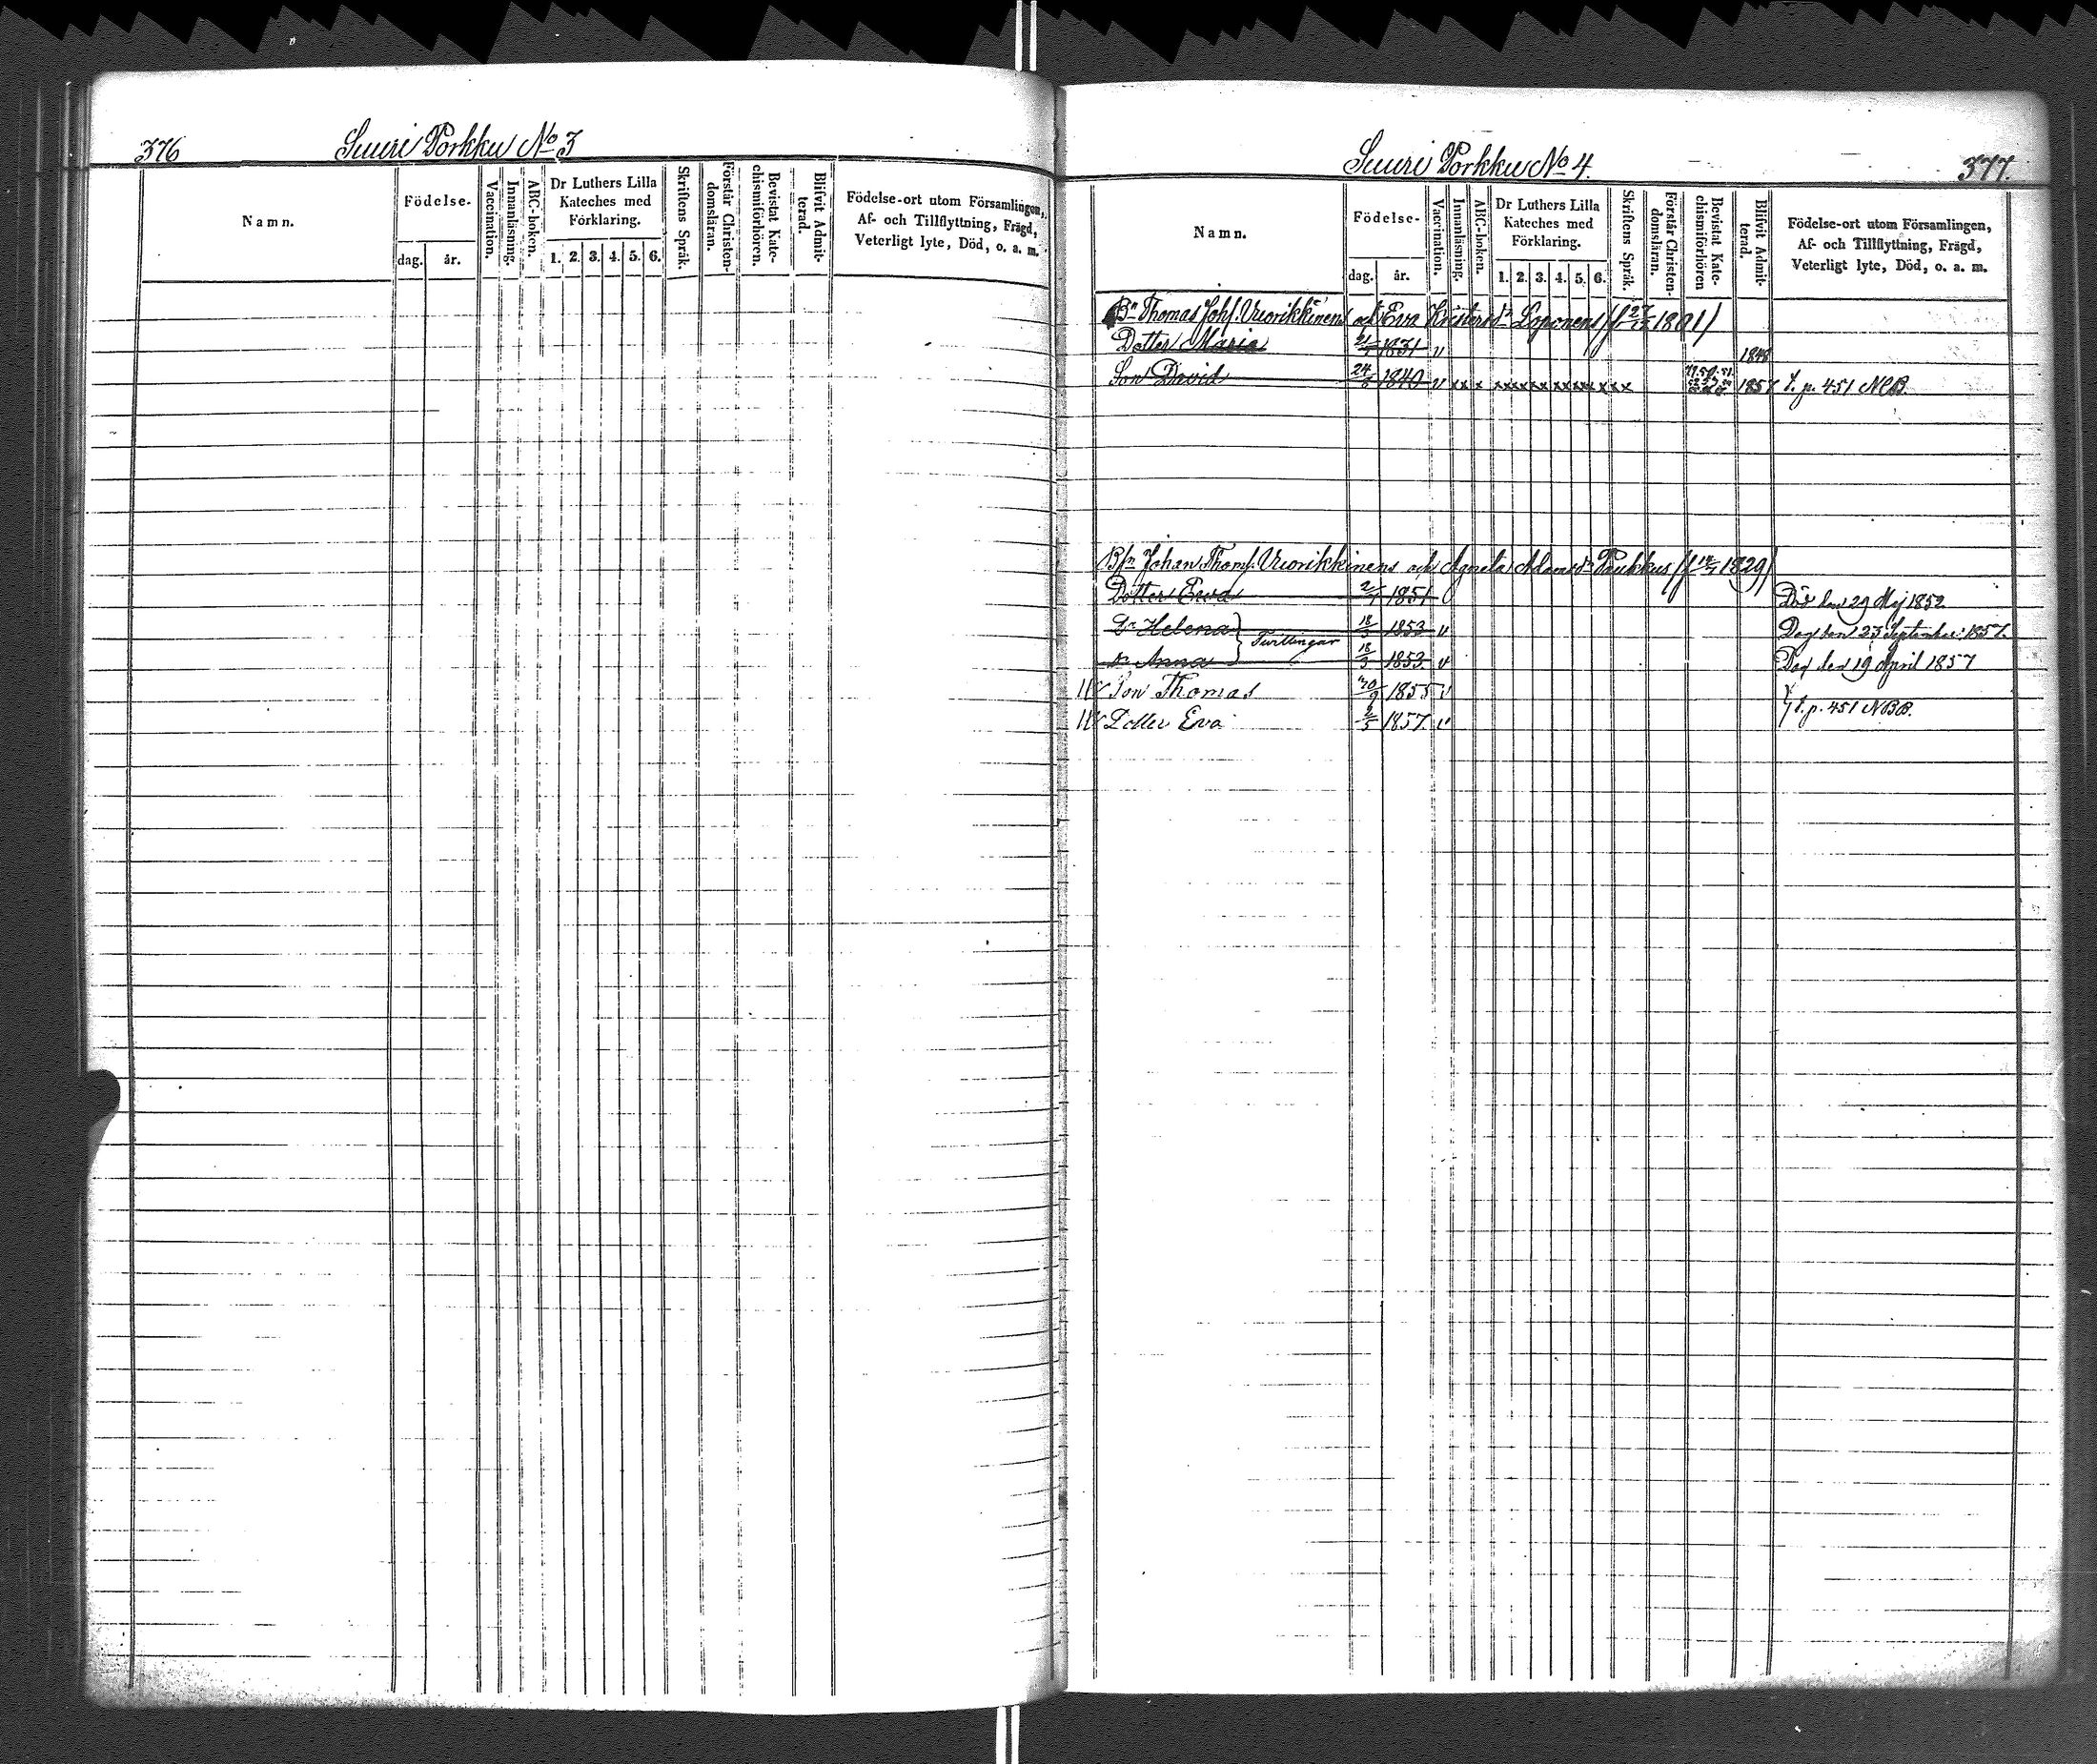 376
Suuri Porkku No 3
Namn.
Födelse-
dag. år.
Vaccination.
Innanläsning.
ABC-boken.
Dr Luthers Lilla
Kateches med
Förklaring.
1. 2. 3. 4. 5. 6.
Skriftens Språk.
Förstår Christen-
domsläran.
Bevistat Kate-
chismiförhören.
Blifvit Admit-
terad.
Födelse-ort utom Församlingen,
Af- och Tillflyttning, Frägd,
Veterligt lyte, Död, o. a. m.
Suuri Porkku No 4.
377.
Namn.
Födelse-
dag. år.
Vaccination.
Innanläsning.
ABC-boken.
Dr Luthers Lilla
Kateches med
Förklaring.
1. 2. 3. 4. 5. 6.
Skriftens Språk.
Förstår Christen-
domsläran.
Bevistat Kate-
chismiförhören
Blifvit Admit-
terad.
Födelse-ort utom Församlingen,
Af- och Tillflyttning, Frägd,
Veterligt lyte, Död, o. a. m.
Bn Thomas Johs. Vuorikkinens och Eva Loponens (f 27/12 1801)
Dotter Maria 1831 v 1848
Son David 24/8 1840 v x x x x x x x x x x x x x x x 1857 f. p. 451 NB.
Bsn Johan Thoms. Vuorikkinens och Agneta Adamsdr Paukkus (f 1829)
Dotter Ewa 2/1 1851 Död den 29 Maj 1852
Dr Helena } Twillingar 18/3 1853 v Dog den 23 September 1857.
Dr Anna 18/3 1853 v Dog den 19 April 1857
Son Thomas 20/9 1855 v
Dotter Eva 2/5 1857 v } f. p. 451 NBB.